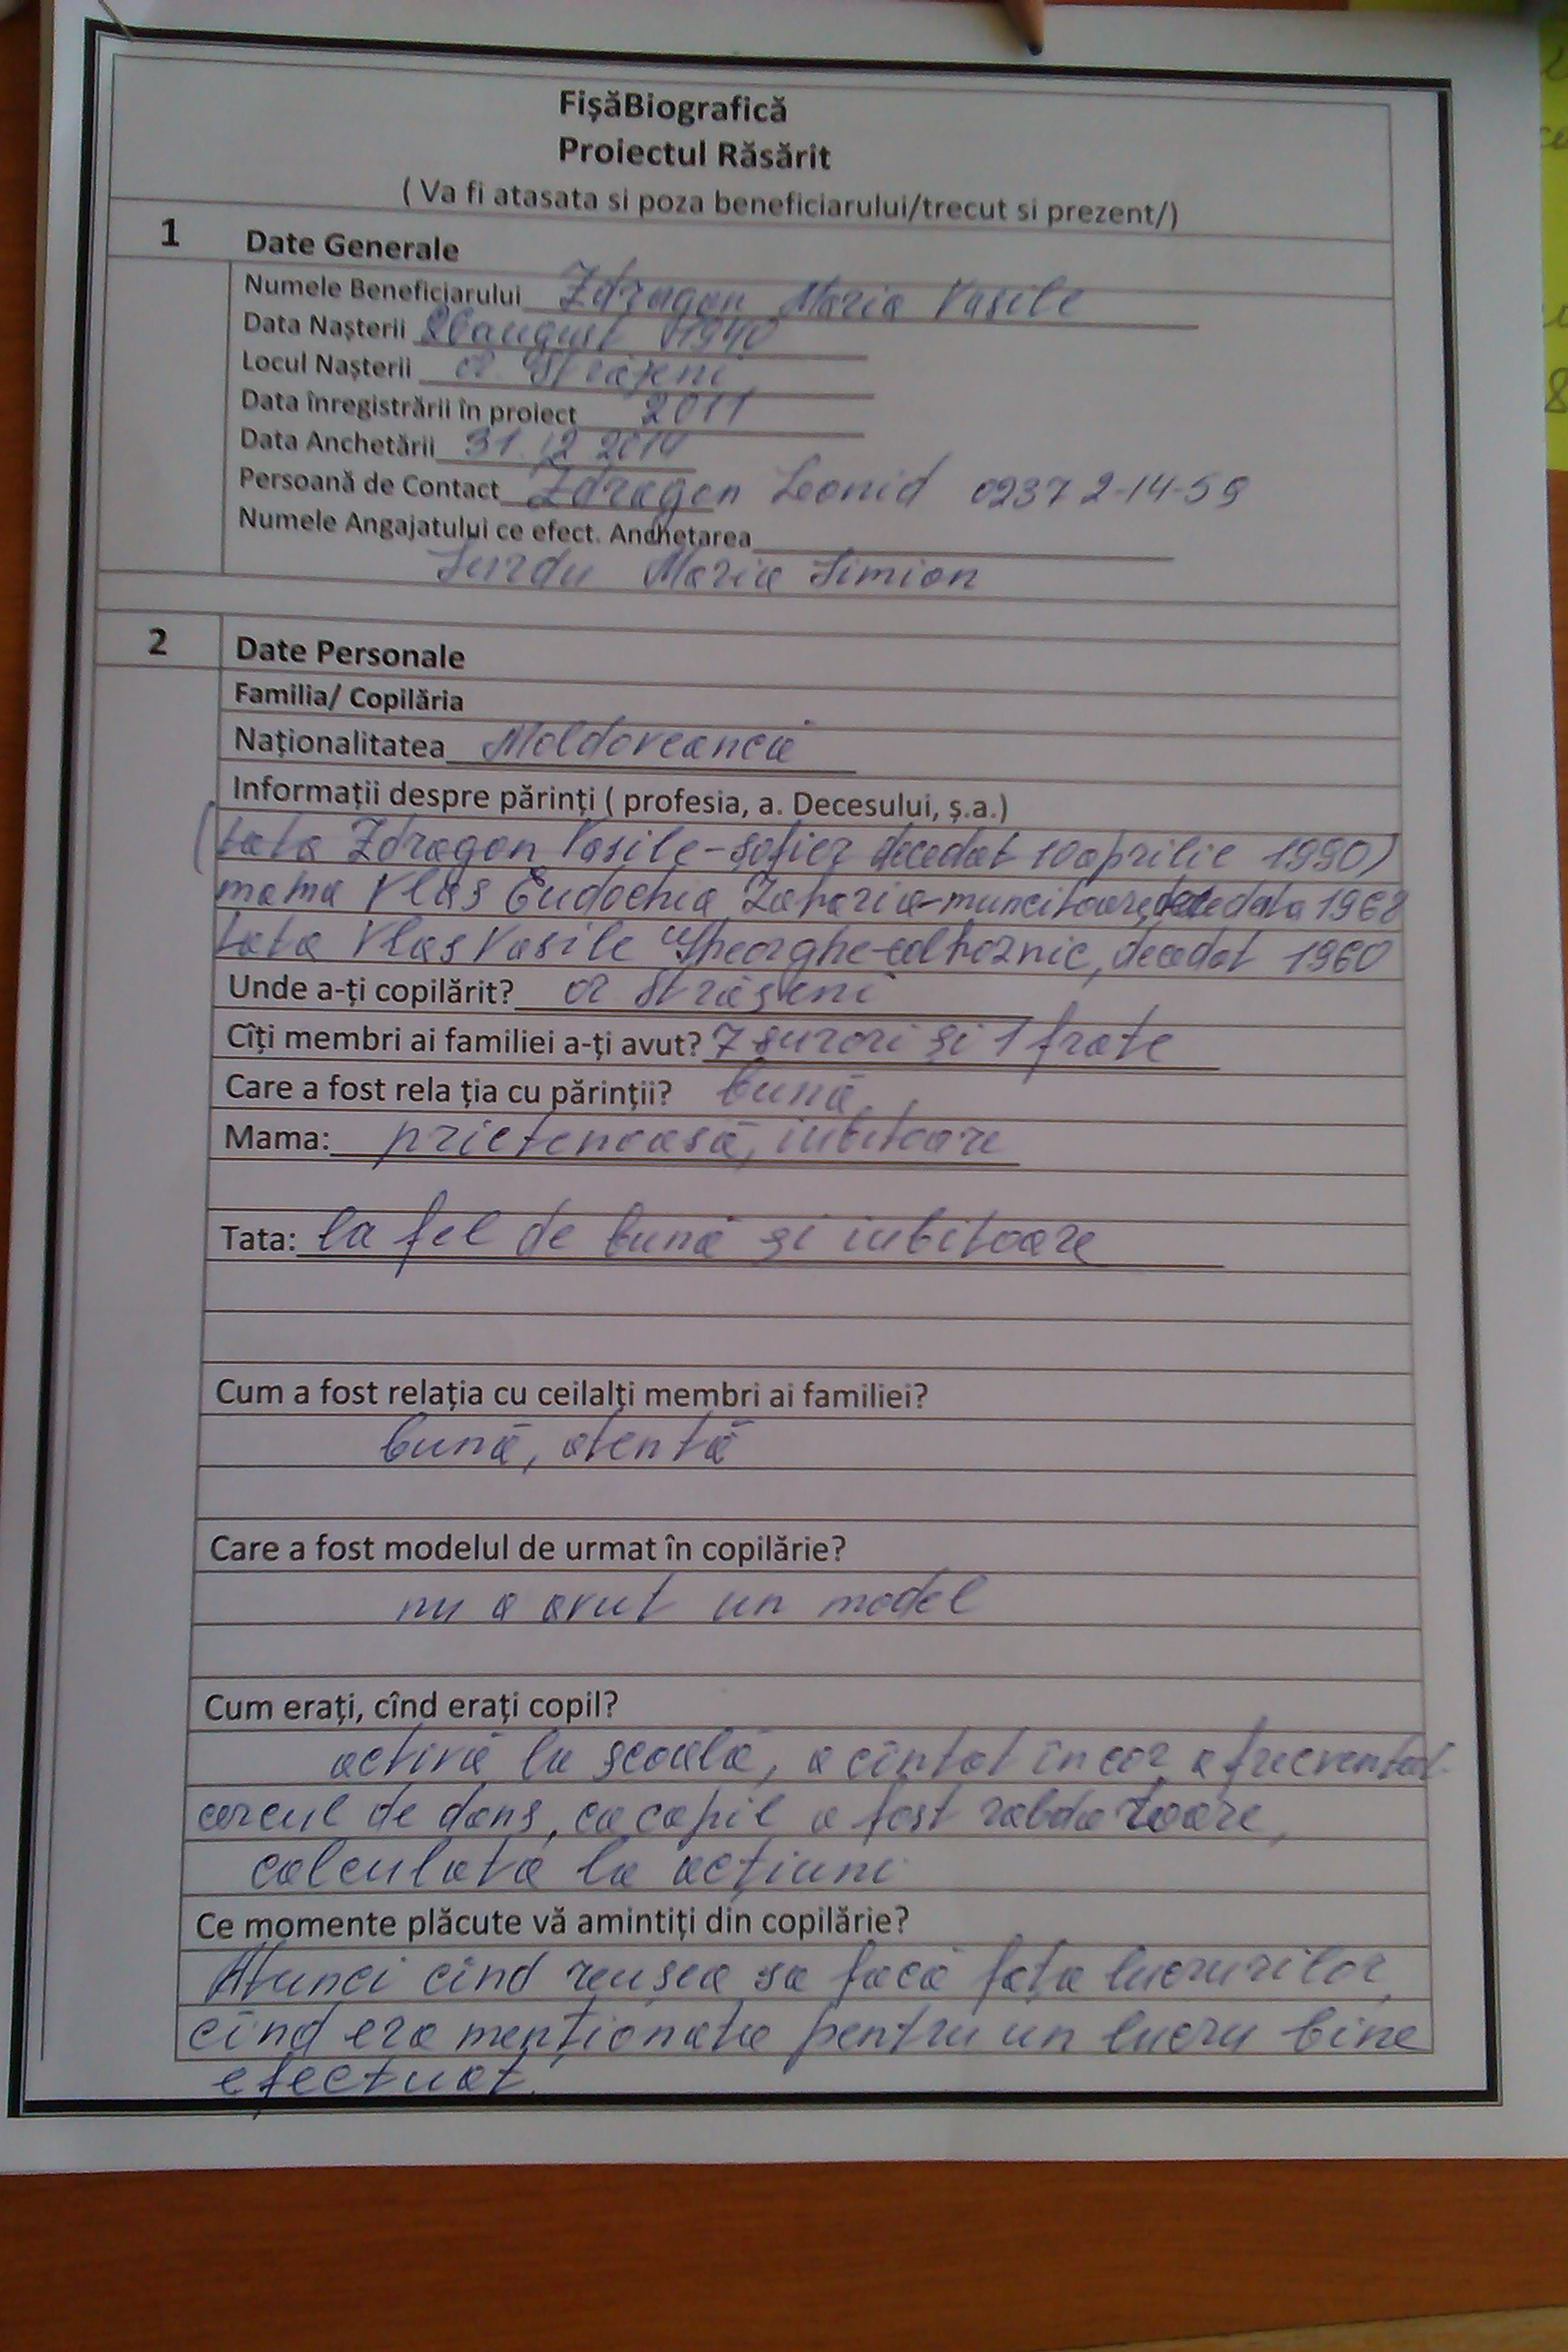 FișăBiografică
Proiectul Răsărit
( Va fi atasata si poza beneficiarului/trecut si prezent/)
1 Date Generale
Numele Beneficiarului Zdragon Maria Vasile
Data Nașterii august 1940
Locul Nașterii or. Strășeni
Data înregistrării în proiect 2011
Data Anchetării 31.12 2014
Persoană de Contact Zdragon Leonid 0237 2-14-59
Numele Angajatului ce efect. Anchetarea
Surdu Maria Simion
2 Date Personale
Familia/ Copilăria
Naționalitatea Moldoveancă
Informații despre părinți ( profesia, a. Decesului, ș.a.)
(tata Zdragon Vasile-șofier decedat 10 aprilie 1990)
mama Vlas Eudochia Zaharia-muncitoare, decedata 1968
tata Vlas Vasile Gheorghe-colhoznic, decedat 1960
Unde a-ți copilărit? or Strășeni
Cîți membri ai familiei a-ți avut? 7 surori și 1 frate
Care a fost rela ția cu părinții? bună,
Mama: prietenoasă, iubitoare
Tata: la fel de bună și iubitoare
Cum a fost relația cu ceilalți membri ai familiei?
bună, atentă
Care a fost modelul de urmat în copilărie?
nu a avut un model
Cum erați, cînd erați copil?
activă la școală, a cîntat în cor, a frecventat
cercul de dans, ca copil a fost rabdatoare,
calculată la acțiuni
Ce momente plăcute vă amintiți din copilărie?
Atunci cînd reușea sa facă fața lucrurilor,
cînd era menționată pentru un lucru bine
efectuat.